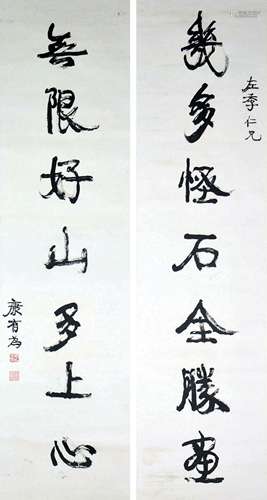 幾多怪石全勝畫
左季仁兄
無限好山多上心
康有為